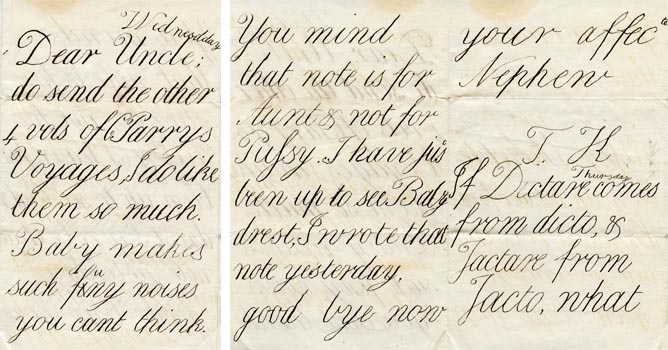 Wednesday
Dear Uncle;
do send the other
4 vols of Parrys
Voyages, I do like
them so much.
Baby makes
such funy noises
you cant think.
You mind
that note is for
Aunt & not for
Pussy. I have jus
been up to see Baby
drest, I wrote that
note yesterday,
good bye now
your affec te
Nephew
T. H
Thursday
If Dictare comes
from dicto, &
Jactare from
Jacto, what